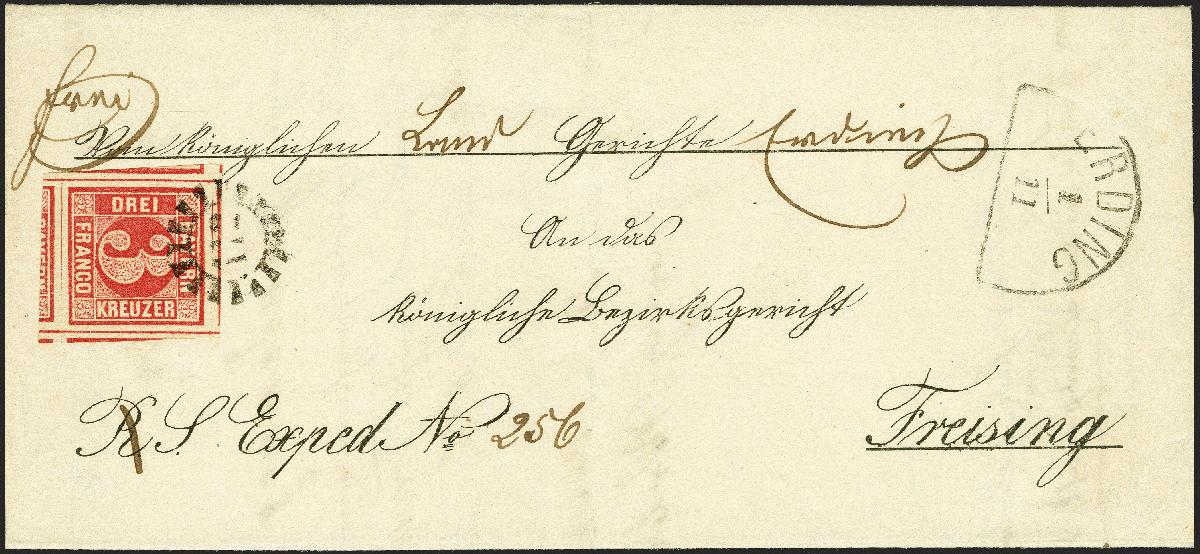 frei
Vom königlichen Land Gerichte Erding
DREI
FRANCO
3
KREUZER
ERDING
1
11
An das
königliche Bezirksgericht
R S. Exped No 256
Freising